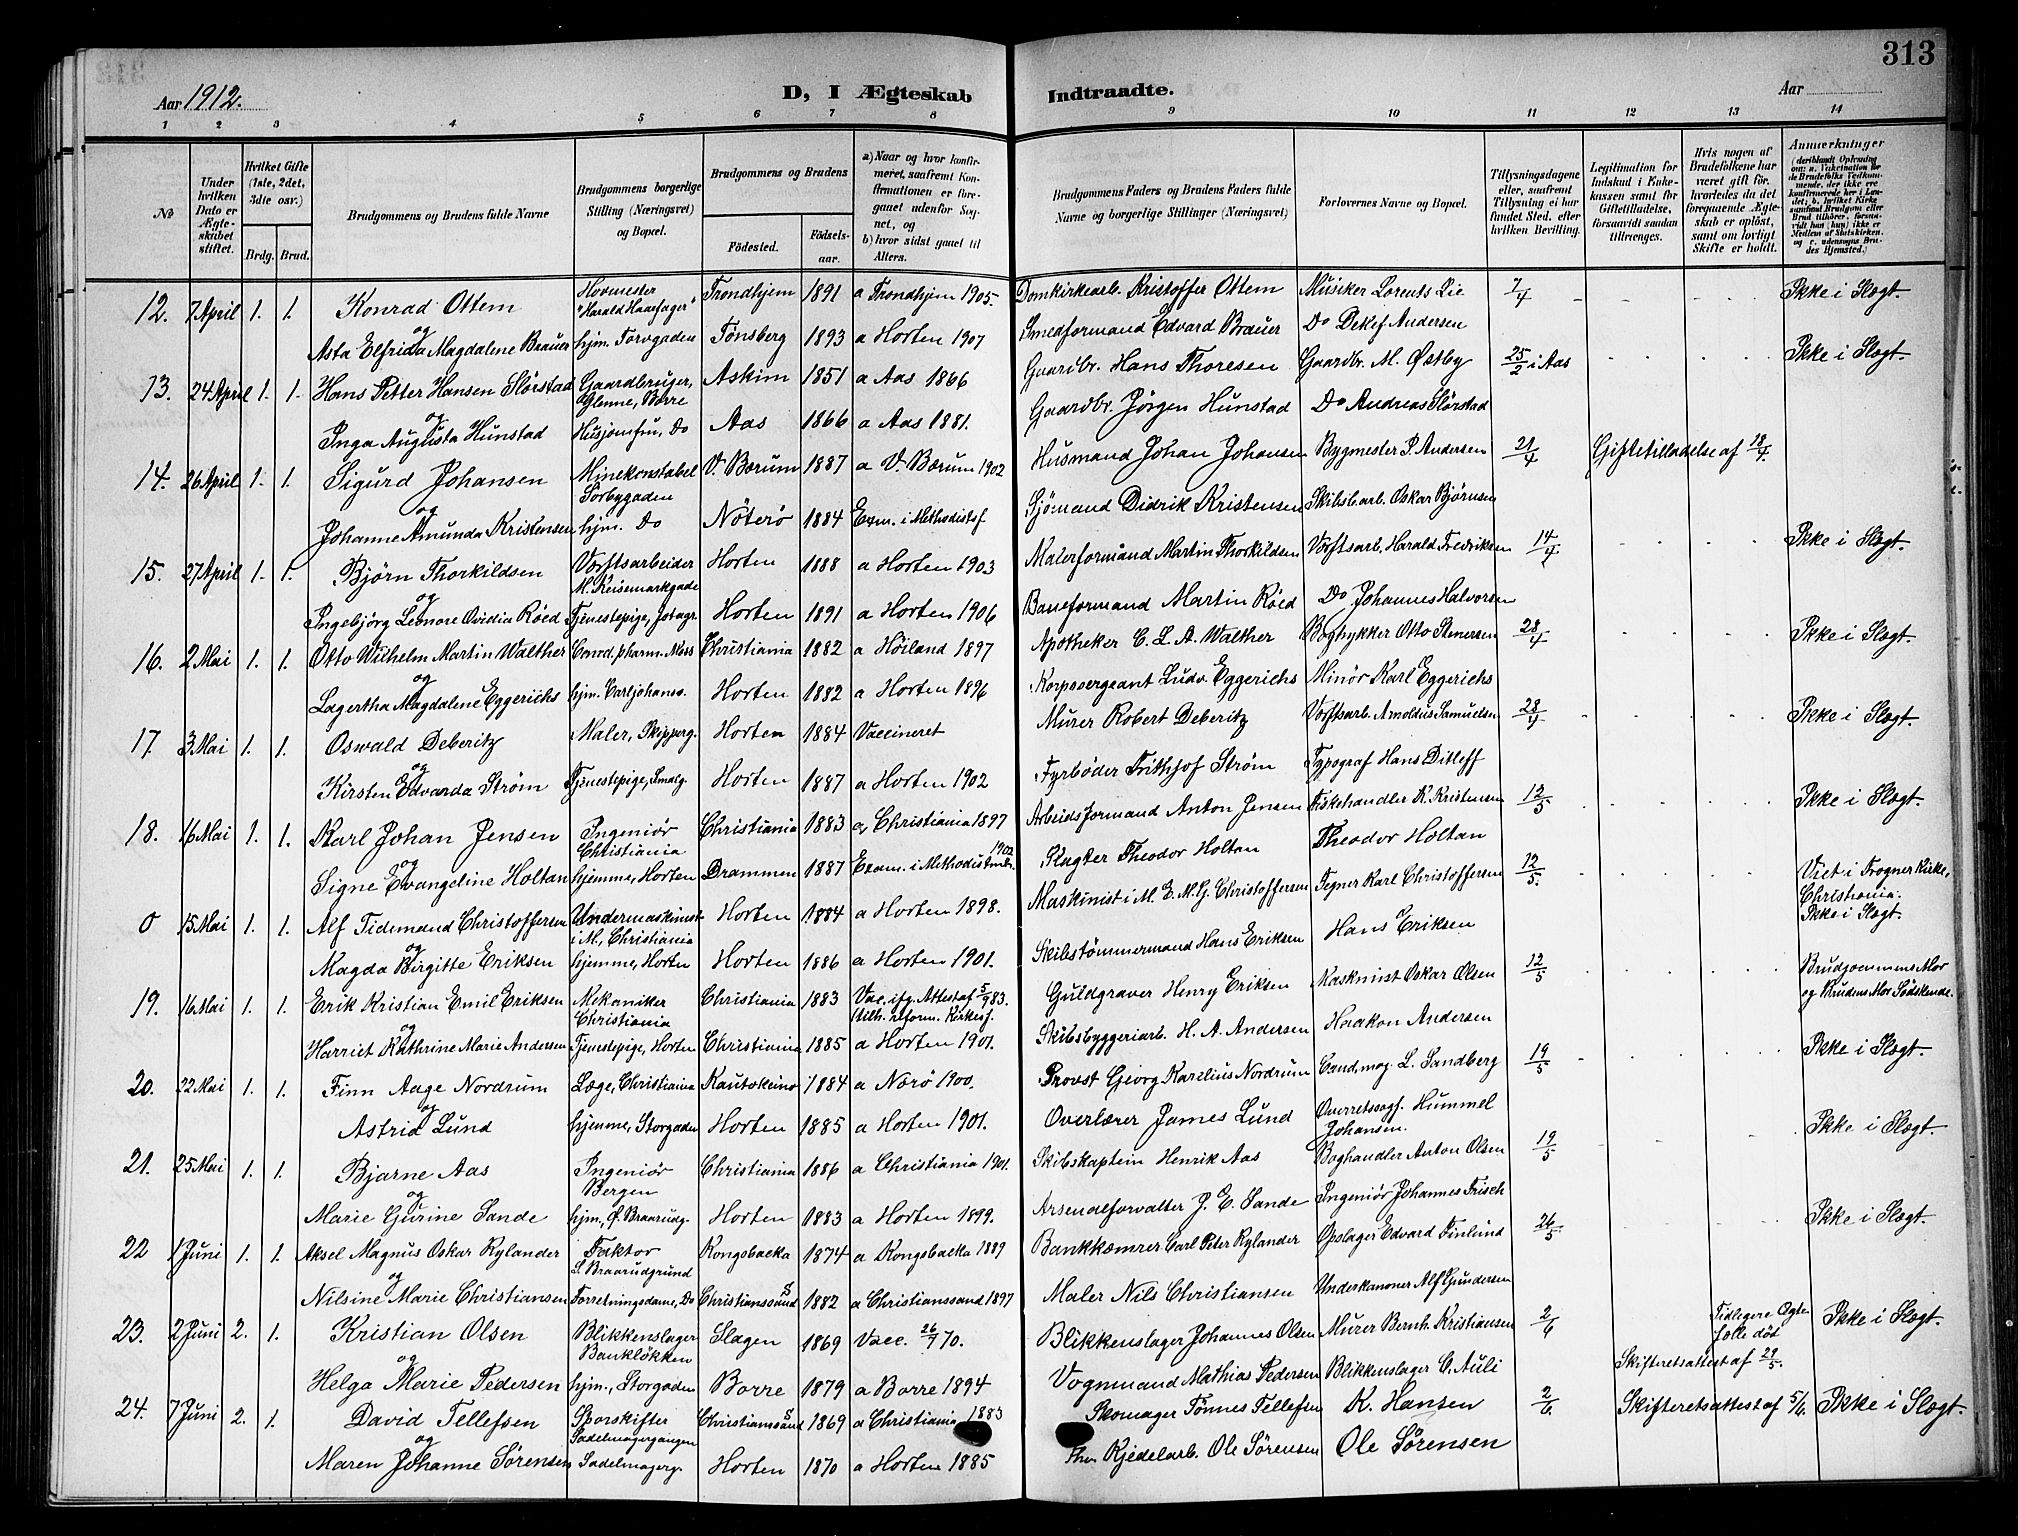 313
Aar 1912. D, I Ægteskab Indtraadte. Aar
1 2 3 4 5 6 7 8 9 10 11 12 13 14
No
Under hvilken Dato er Ægteskabet stiftet.
Hvilket Gifte (1ste, 2det, 3die osv.)
Brdg. Brud.
Brudgommens og Brudens fulde Navne
Brudgommens borgerlige Stilling (Næringsvei) og Bopæl.
Brudgommens og Brudens
Födested. Födsels-aar.
a) Naar og hvor konfirmeret, saafremt Konfirmationen er foregaaet udenfor Sognet, og
b) hvor sidst gaaet til Alters.
Brudgommens Faders og Brudens Faders fulde Navne og borgerlige Stillinger (Næringsvei)
Forlovernes Navne og Bopæl.
Tillysningsdagene eller, saafremt Tillysning ei har fundet Sted, efter hvilken Bevilling.
Legitimation for Indskud i Enkekassen samt for Giftetilladelse, forsaavidt saadan tiltrænges.
Hvis nogen af Brudefolkene har været gift för, hvorledes da det foregaaende Ægteskab er oplöst, samt om lovligt Skifte er holdt.
Anmerkninger (deriblandt Oplysning om: a. Vakcination for de Brudefolks Vedkommende, der ikke ere konfirmerede her i Landet; b. hvilket Kirkesamfund Brudgom eller Brud tilhörer, forsaavidt han (hun) ikke er Medlem af Statskirken, og c. udensogns Brudes Hjemsted.)
12. 7 April 1. 1. Konrad Ottem Hovmester "Harald Haarfager" Trondhjem 1891 a Trondhjem 1905. Domkirkearb. Kristoffer Ottem Musiker Lorents Lie 7/4 Ikke i Slægt.
og
Asta Elfrida Magdalene Brauer hjm. Torvgaden Tønsberg 1893 a Horten 1907 Smedformand Edvard Brauer Do Detlef Andersen
13. 24 April 1. 1. Hans Petter Hansen Slørstad Gaardbruger, Glenne, Borre Askim 1851 a Aas 1866 Gaardbr. Hans Thoresen Gaardbr. M. Østby 25/2 i Aas Ikke i Slægt.
og
Inga Augusta Hunstad Husjomfru, Do Aas 1866 a Aas 1881. Gaardbr. Jørgen Hunstad Do Andreas Slørstad
14. 26 April 1. 1. Sigurd Johansen Minekonstabel Sørbygaden V. Bærum 1887 a V. Bærum 1902 Husmand Johan Johansen Bygmester P. Andersen 21/4 Giftetilladelse af 18/4.
og
Johanne Amunda Kristensen hjm. Do Nøterø 1884 Exm. i Methodistsf Sjømand Didrik Kristensen Skibsbarb. Oskar Bjørnsen
15. 27 April 1. 1. Bjørn Thorkildsen Værftsarbeider M. Keisemarkgade Horten 1888 a Horten 1903 Malerformand Martin Thorkildsen Værftsarb. Harald Fredriksen 14/4 Ikke i Slægt.
og
Ingebjørg Leonore Ovidia Røed Tjenestepige, Jotagr. Horten 1891 a Horten 1906 Baneformand Martin Røed Do Johannes Halvorsen
16. 2 Mai 1. 1. Otto Wilhelm Martin Walther Cand. pharm. Moss Christiania 1882 a Høiland 1897 Apotheker C. L. A. Walther Boghykker Otto Stenersen 28/4 Ikke i Slægt.
og
Lagertha Magdalene Eggerichs hjm. Carljohanss. Horten 1882 a Horten 1896 Korpssergeant Ludv. Eggerichs Minør Karl Eggerichs
17 3 Mai 1. 1. Oswald Deberitz Maler, Skipperg. Horten 1884 Vaccineret Murer Robert Deberitz Værftsarb. Arnoldus Samuelsen 28/4 Ikke i Slægt.
og
Kirsten Edvarda Strøm Tjenestepige, Smalg. Horten 1887 a Horten 1902 Fyrbøder Frithjof Strøm Typograf Hans Ditleff
18. 16 Mai 1. 1. Karl Johan Jensen Ingeniør Christiania Christiania 1883 a Christiania 1897 Arbeidsformand Anton Jensen Fiskehandler K. Kristensen 12/5 Ikke i Slægt.
og
Signe Evangeline Holtan hjemme, Horten Drammen 1887 Exam. i Methodistmh. 1902 Slagter Theodor Holtan Theodor Holtan
0 15 Mai 1. 1. Alf Tidemand Christoffersen Undermaskinist i M., Christiania Horten 1884 a Horten 1898. Maskinist i M. E. M. G. Christoffersen Tegner Karl Christoffersen 12/5. Viet i Frogner Kirke, Christiania. Ikke i Slægt.
og
Magda Birgitte Eriksen hjemme, Horten Horten 1886 a Horten 1901. Skibstømmermand Hans Eriksen Hans Eriksen
19. 16 Mai 1. 1. Erik Kristian Emil Eriksen Mekaniker Christiania Christiania 1883 Vac. ifg. Attest af 5/9 83. (tilh. reform. Kirkes). Guldgraver Henry Eriksen Maskinist Oskar Olsen 12/5 Brudgommens Mor og Brudens Mor Sødskende.
og
Harriet Kathrine Marie Andersen Tjenestepige, Horten Christiania 1885 a Horten 1901. Skibsbyggeriarb. H. A. Andersen Haakon Andersen
20. 22 Mai 1. 1. Finn Aage Nordrum Læge, Christiania Kautokeino 1884 a Nærø 1900. Provst Georg Karelius Nordrum Cand. mag. L. Sandberg 19/5 Ikke i Slægt.
og
Astrid Lund hjemme, Storgaden Horten 1885 a Horten 1901. Overlærer James Lund Overretssagf. Hummel Johansen.
21. 25 Mai 1. 1. Bjarne Aas Ingeniør Bergen Christiania 1886 a Christiania 1901. Skibskaptein Henrik Aas Boghandler Anton Olsen 19/5 Ikke i Slægt.
og
Marie Gurine Sande hjm., Ø. Braarudg. Horten 1883 a Horten 1899. Arsenalforvalter J. E. Sande Ingeniør Johannes Frisch
22 1 Juni 1. 1. Aksel Magnus Oskar Rylander Faktor S. Braarudgrund Kongsbacka 1874 a Kongsbacka 1889 Bankkæmrer Carl Peter Rylander Opslager Edvard Finlund 26/5 Ikke i Slægt.
og
Nilsine Marie Christiansen Forretningsdame, Do Christianssand 1882 a Christianssand 1897 Maler Nils Christiansen Underkanoner Alf Gundersen
23. 2 Juni 2. 1. Kristian Olsen Blikkenslager Bankløkken Slagen 1869 Vacc. 26/7 70. Blikkenslager Johannes Olsen Murer Bernh. Kristiansen 2/6 Skifteretsattest af 29/5. Tidligere Ægtefælle død Ikke i Slægt.
og
Helga Marie Pedersen hjm., Storgaden Borre 1879 a Borre 1894 Vognmand Mathias Pedersen Blikkenslager C. Auli
24. 7 Juni 2. 1. David Tellefsen Sporskifter Sadelmagergangen Christianssand 1869 a Christiania 1883 Skomager Tønnes Tellefsen K. Hansen 2/6 Skifteretsattest af 5/6. Ikke i Slægt.
og
Maren Johanne Sørensen Sadelmagerg. Horten 1870 a Horten 1885 Kjedelarb. Ole Sørensen Ole Sørensen